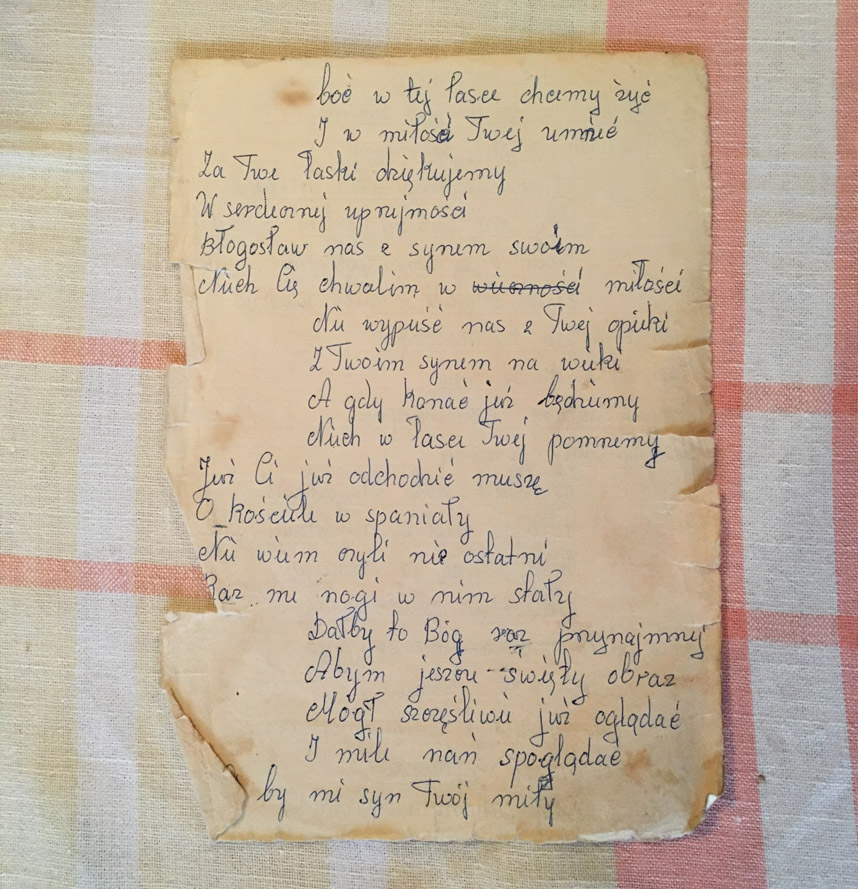 boć w tej łasce chcemy żyć
I w miłości Twej umrzeć
Za Twe łaski dziękujemy
W serdecznej uprzejmości
Błogosław nas z synem swoim
Niech Cię chwalim w wieczności miłości
Nie wypuść nas z Twej opieki
Z Twoim synem na wieki
A gdy konać już będziemy
Niech w łasce Twej pomrzemy
Już Ci już odchodzić muszę
O kościele w spaniały
Nie wiem czyli nie ostatni
Raz me nogi w nim stały
Dałby to Bóg raz przynajmniej
Abym jeszcze święty obraz
Mógł szczęśliwie już oglądać
I mile nań spoglądać
by mi syn Twój miły